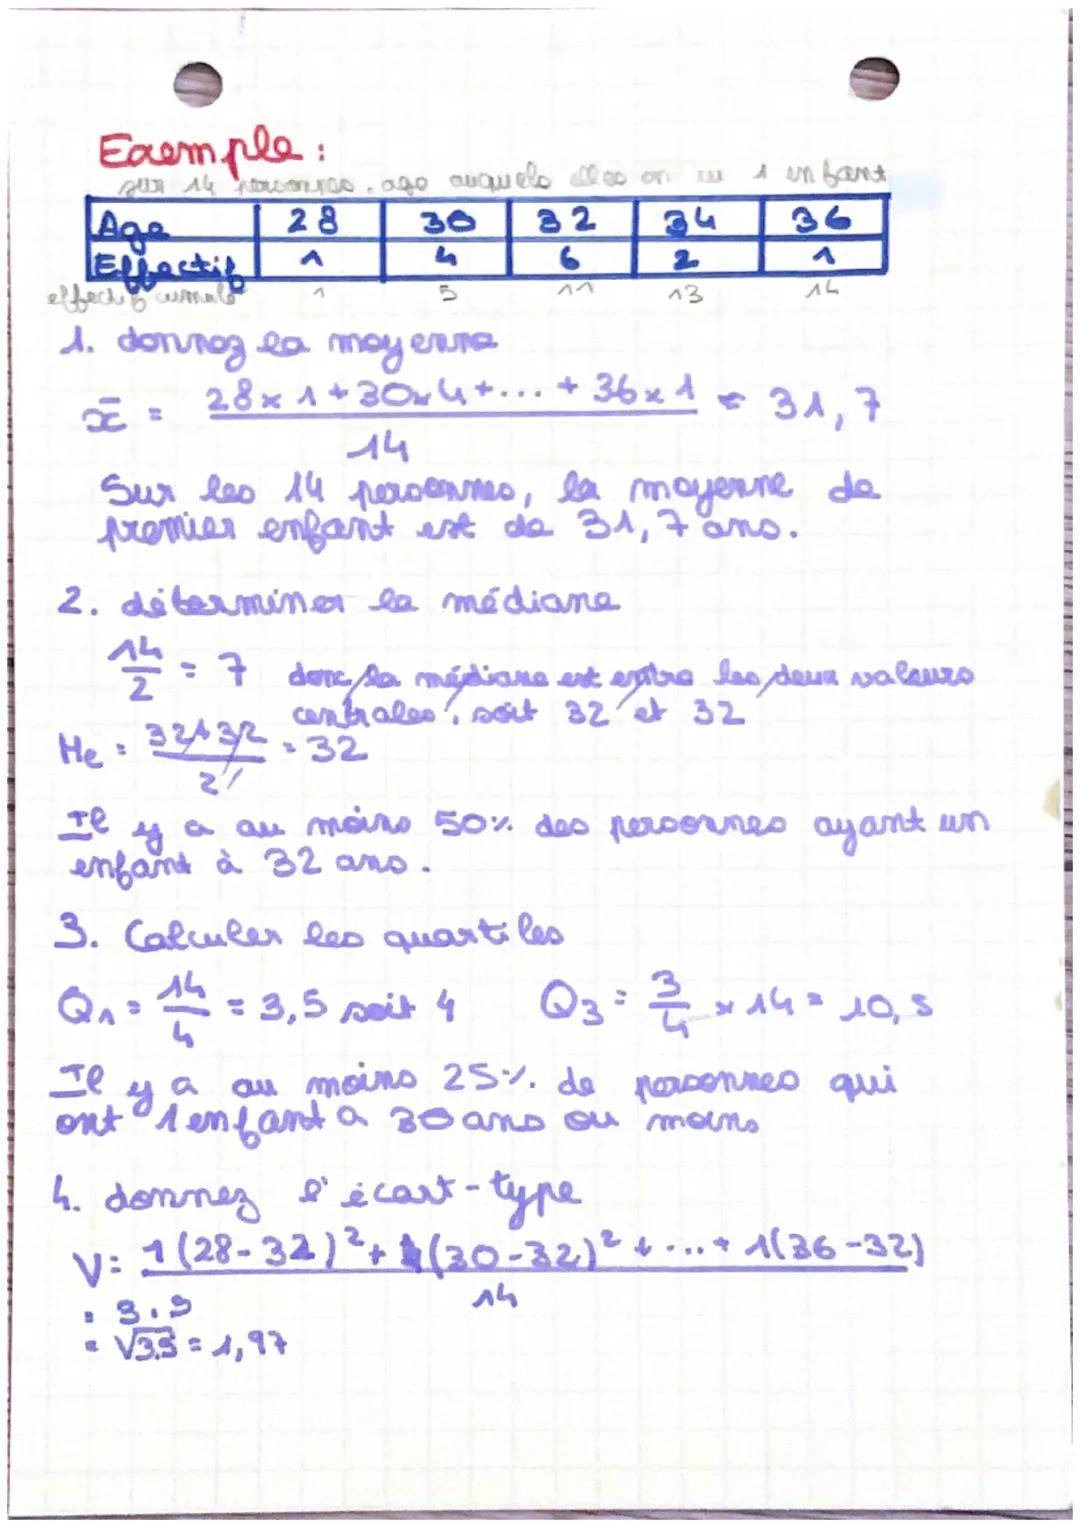 Exemple :
sur 14 personnes, age auquels elles on eu 1 enfant
Age 28 30 32 34 36
Effectif 1 4 6 2 1
effectif cumulé 1 5 11 13 14
1. donnez la moyenne
x̄ = (28 x 1 + 30 x 4 + ... + 36 x 1) / 14 = 31,7
Sur les 14 personnes, la moyenne de
premier enfant est de 31,7 ans.
2. déterminer la médiane
14/2 = 7 donc la médiane est entre les deux valeurs
centrales, soit 32 et 32
Me = (32+32)/2 = 32
Il y a au moins 50% des personnes ayant un
enfant à 32 ans.
3. Calculer les quartiles
Q1 = 14/4 = 3,5 soit 4 Q3 = 3/4 x 14 = 10,5
Il y a au moins 25% de personnes qui
ont 1 enfant a 30 ans ou moins
4. donnez l'écart-type
V = (1(28-32)² + 4(30-32)² + ... + 1(36-32)) / 14
= 3.9
= √3.9 = 1,97